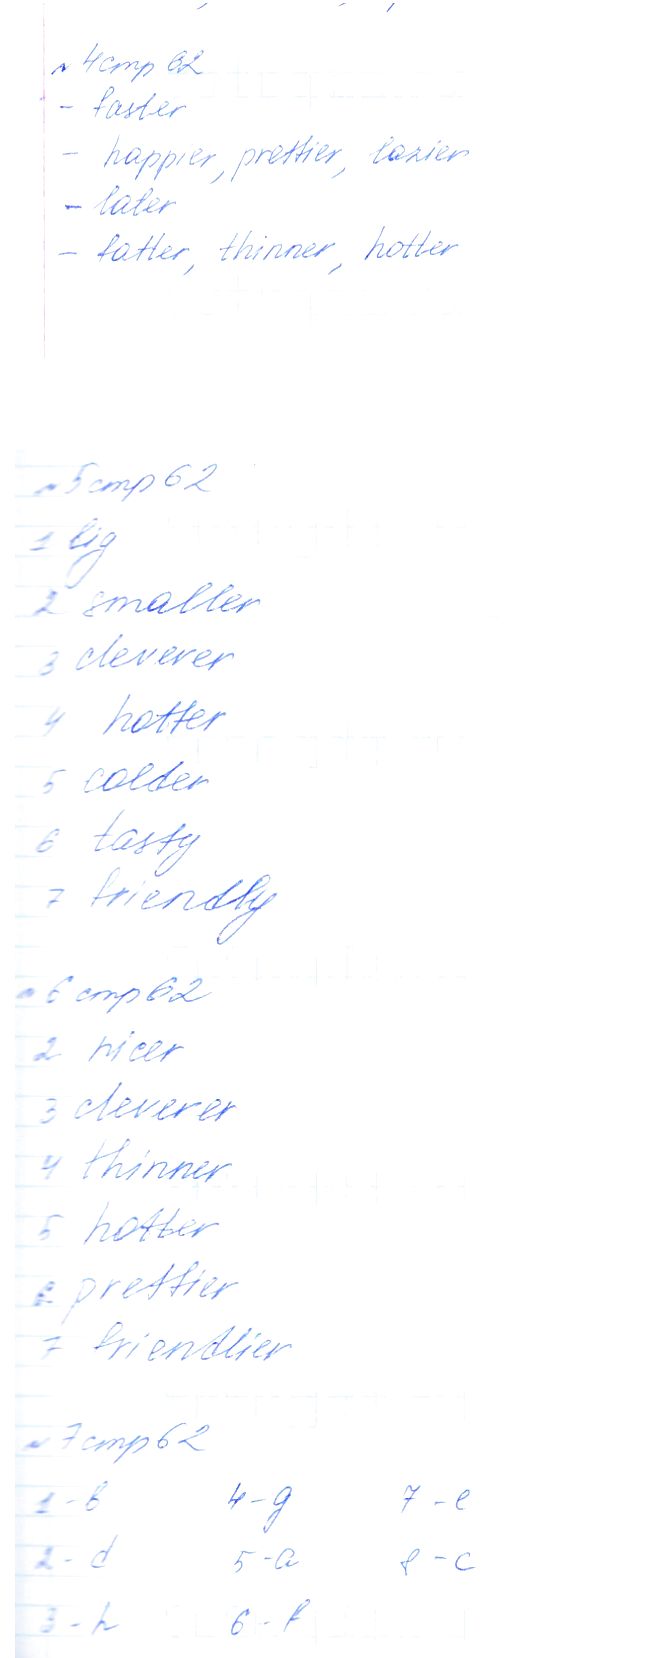 № 4 стр 62
- faster
- happier, prettier, lazier
- later
- fatter, thinner, hotter
№ 5 стр 62
1 big
2 smaller
3 cleverer
4 hotter
5 colder
6 tasty
7 friendly
№ 6 стр 62
2 nicer
3 cleverer
4 thinner
5 hotter
6 prettier
7 friendlier
№ 7 стр 62
1 - b 4 - g 7 - e
2 - d 5 - a 8 - c
3 - h 6 - f